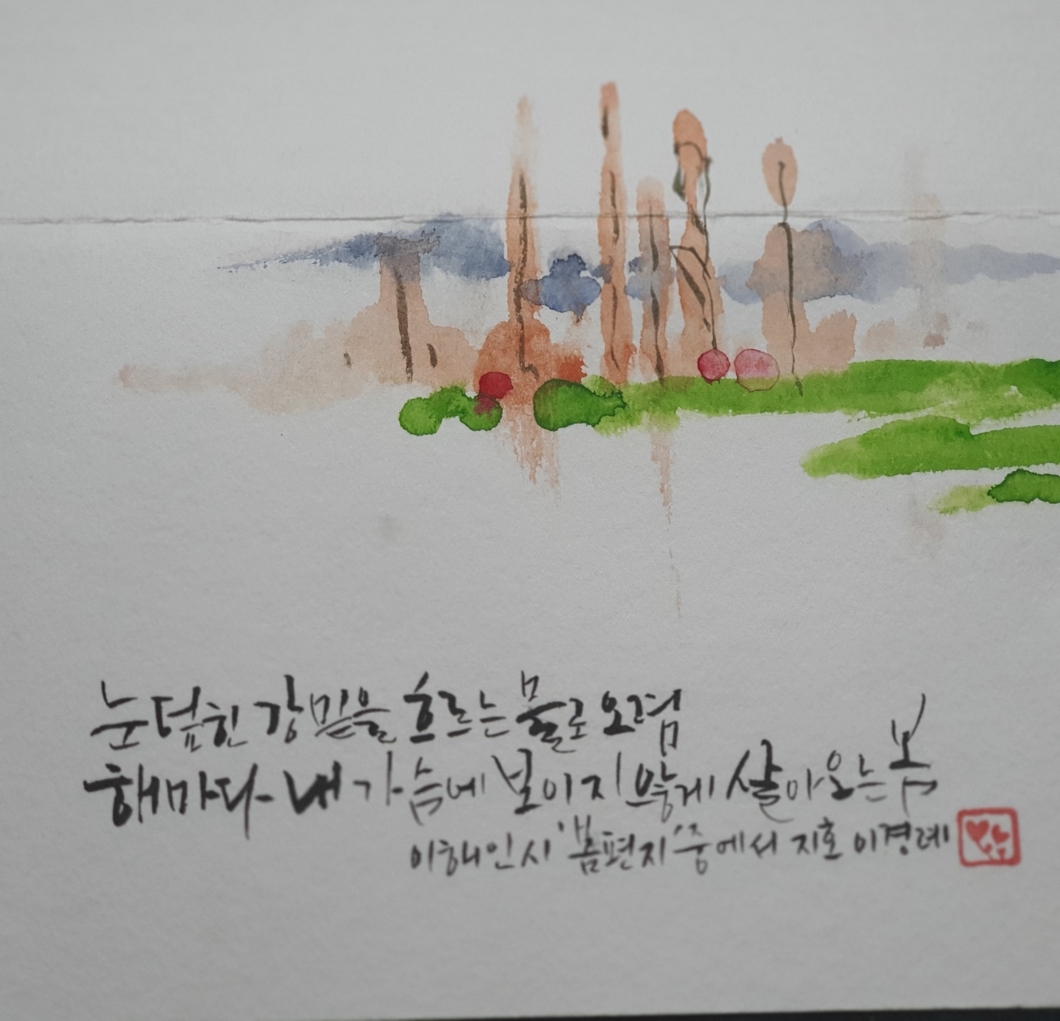 눈덮힌 강 밑을 흐르는 물로 오렴
해마다 내 가슴에 보이지 않게 살아오는 봄
이해인 시 '봄편지' 중에서 지호 이경례